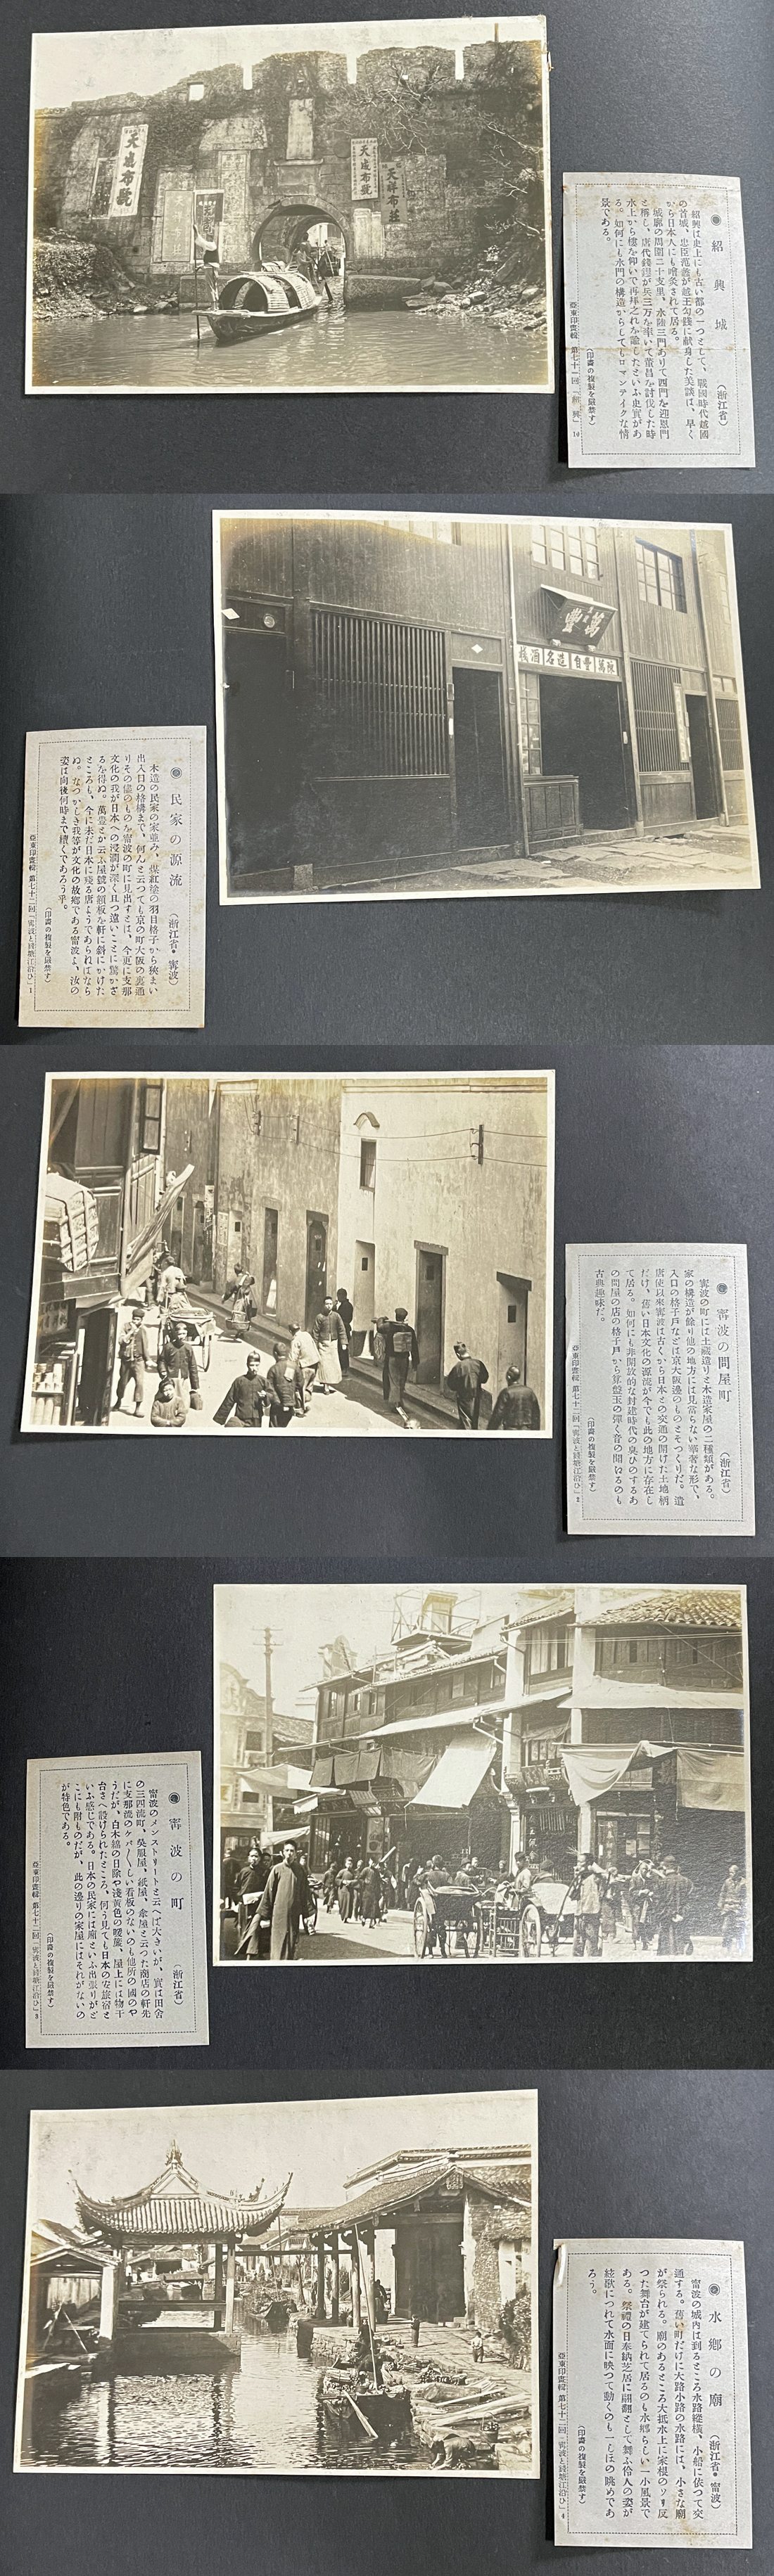 天成布號
天成布號
天祥布莊
◉ 紹興城 （浙江省）
紹興は史上にも古い都の一つとして、戰國時代越國
の首城、忠臣范蠡が越王勾踐に献身した美談は、早く
から日本人にも膾炙されて居る。
城廓の周圍二十支里、水陸三門ありて西門を迎恩門
と稱し、唐代錢鏐が兵三万を率いて董昌を討伐した時
水上から樓を仰いで再拜之れを諭したといふ史實があ
る。如何にも水門の構造からしてもロマンテイクな情
景である。
（印畵の複製を嚴禁す）
亞東印畵輯 第七十一回「紹興」 10
萬豐
◉ 民家の源流 （浙江省・寗波）
木造の民家の家並み、煤紅塗の羽目格子から狹まい
出入口の格構まで、何んと云つても京の町大阪の裏通
りその儘のものを寗波の町に見出すとは、今更に支那
文化の我が日本への浸潤が深く且つ遠いことに驚かざ
るを得ぬ。萬豊とか云ふ屋號の額板を軒に斜にかけた
ところも、今に未だ日本に殘る唐ようであらねばなら
ぬ。なつかしき我等が文化の故郷である寗波よ、汝の
姿は向後何時まで續くであらう乎。
（印畵の複製を嚴禁す）
亞東印畵輯 第七十二回「寗波と錢塘江沿ひ」 1
◉ 寗波の問屋町 （浙江省）
寗波の町には土藏造りと木造家屋の二種類がある。
家の構造が餘り他の地方には見當らない華奢な形で、
入口の格子戸などは京大阪邊のものとそつくりだ。遣
唐使以來寗波は古くから日本との交通の開けた土地柄
だけ、舊い日本文化の源流が今でも此の地方に存在し
て居る。如何にも非開放的な封建時代の臭ひのするあ
の問屋の店の格子戸から算盤玉の彈く音の聞けるのも
古典趣味だ。
（印畵の複製を嚴禁す）
亞東印畵輯 第七十二回「寗波と錢塘江沿ひ」 2
◉ 寗波の町 （浙江省）
寗波のメンストリートと云へば大きいが、實は田舎
の三四流町、吳服屋、紙屋、傘屋と云つた商店の軒先
に支那流のケバ〱しい看板のないのも他所の國のや
うだが、白木綿の日除や淺黃色の暖簾、屋上には物干
台さへ設けられたところ、何う見ても日本の安旅宿と
いふ感じである。日本の民家には廂といふ出張りがど
こにも附ものだが、此の邊りの家屋にはそれがないの
が特色である。
（印畵の複製を嚴禁す）
亞東印畵輯 第七十二回「寗波と錢塘江沿ひ」 3
◉ 水鄕の廟 （浙江省・寗波）
寗波の城內は到るところ水路縱橫、小船に依つて交
通する。舊い町だけに大路小路の水路には、小さな廟
が祭られる。廟のあるところ大抵水上に家根のソリ反
つた舞台が建てられて居るのも水鄕らしい一小風景で
ある。祭禮の日奉納芝居に翩翻として舞ふ伶人の姿が
絃歌につれて水面に映つて動くのも一しほの眺めであ
らう。
（印畵の複製を嚴禁す）
亞東印畵輯 第七十二回「寗波と錢塘江沿ひ」 4